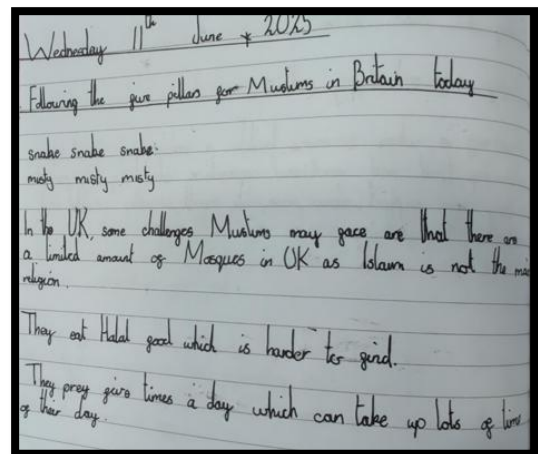 Wednesday 11th June 2025
Following the five pillars for Muslims in Britain today
snake snake snake.
misty misty misty
In the UK, some challenges Muslims may face are that there are
a limited amount of Mosques in UK as Islam is not the
religion.
They eat Halal food which is harder to find.
They prey five times a day which can take up lots of time
of their day.